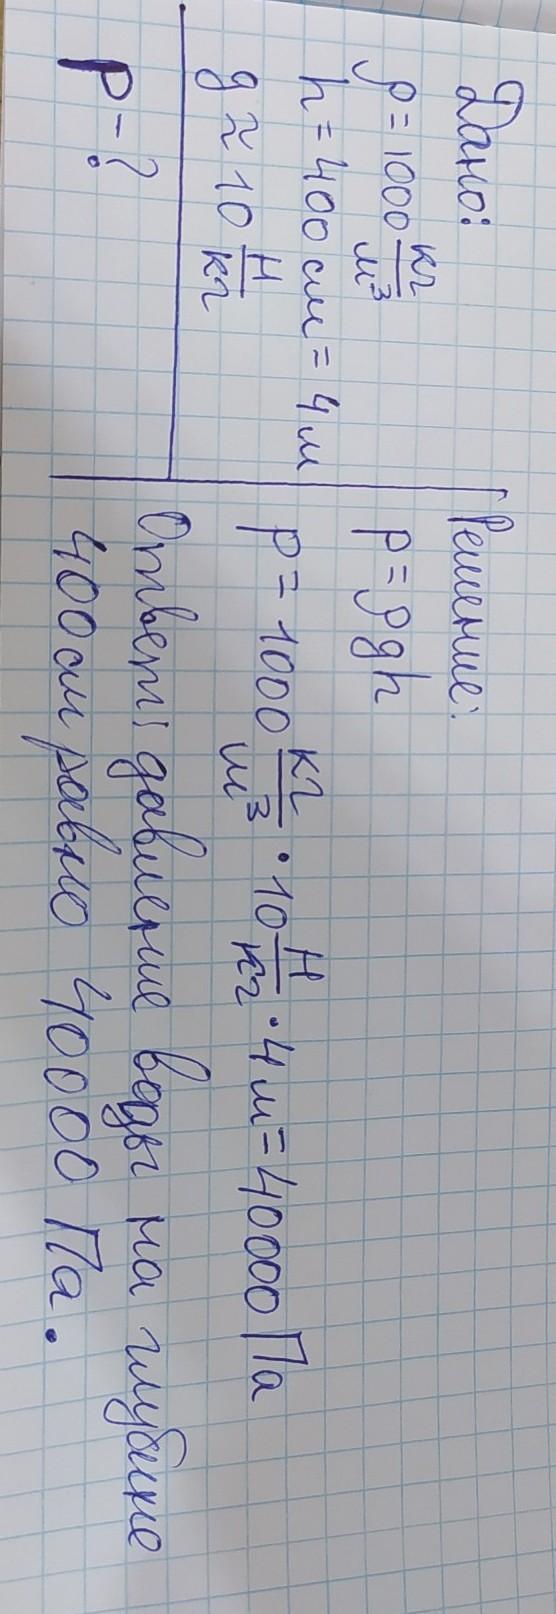 Дано:
ρ = 1000 кг/м³
h = 400 см = 4 м
g ≈ 10 Н/кг
P - ?
Решение:
p = ρgh
p = 1000 кг/м³ · 10 Н/кг · 4 м = 40000 Па
Ответ: давление воды на глубине
400 см равно 40000 Па.